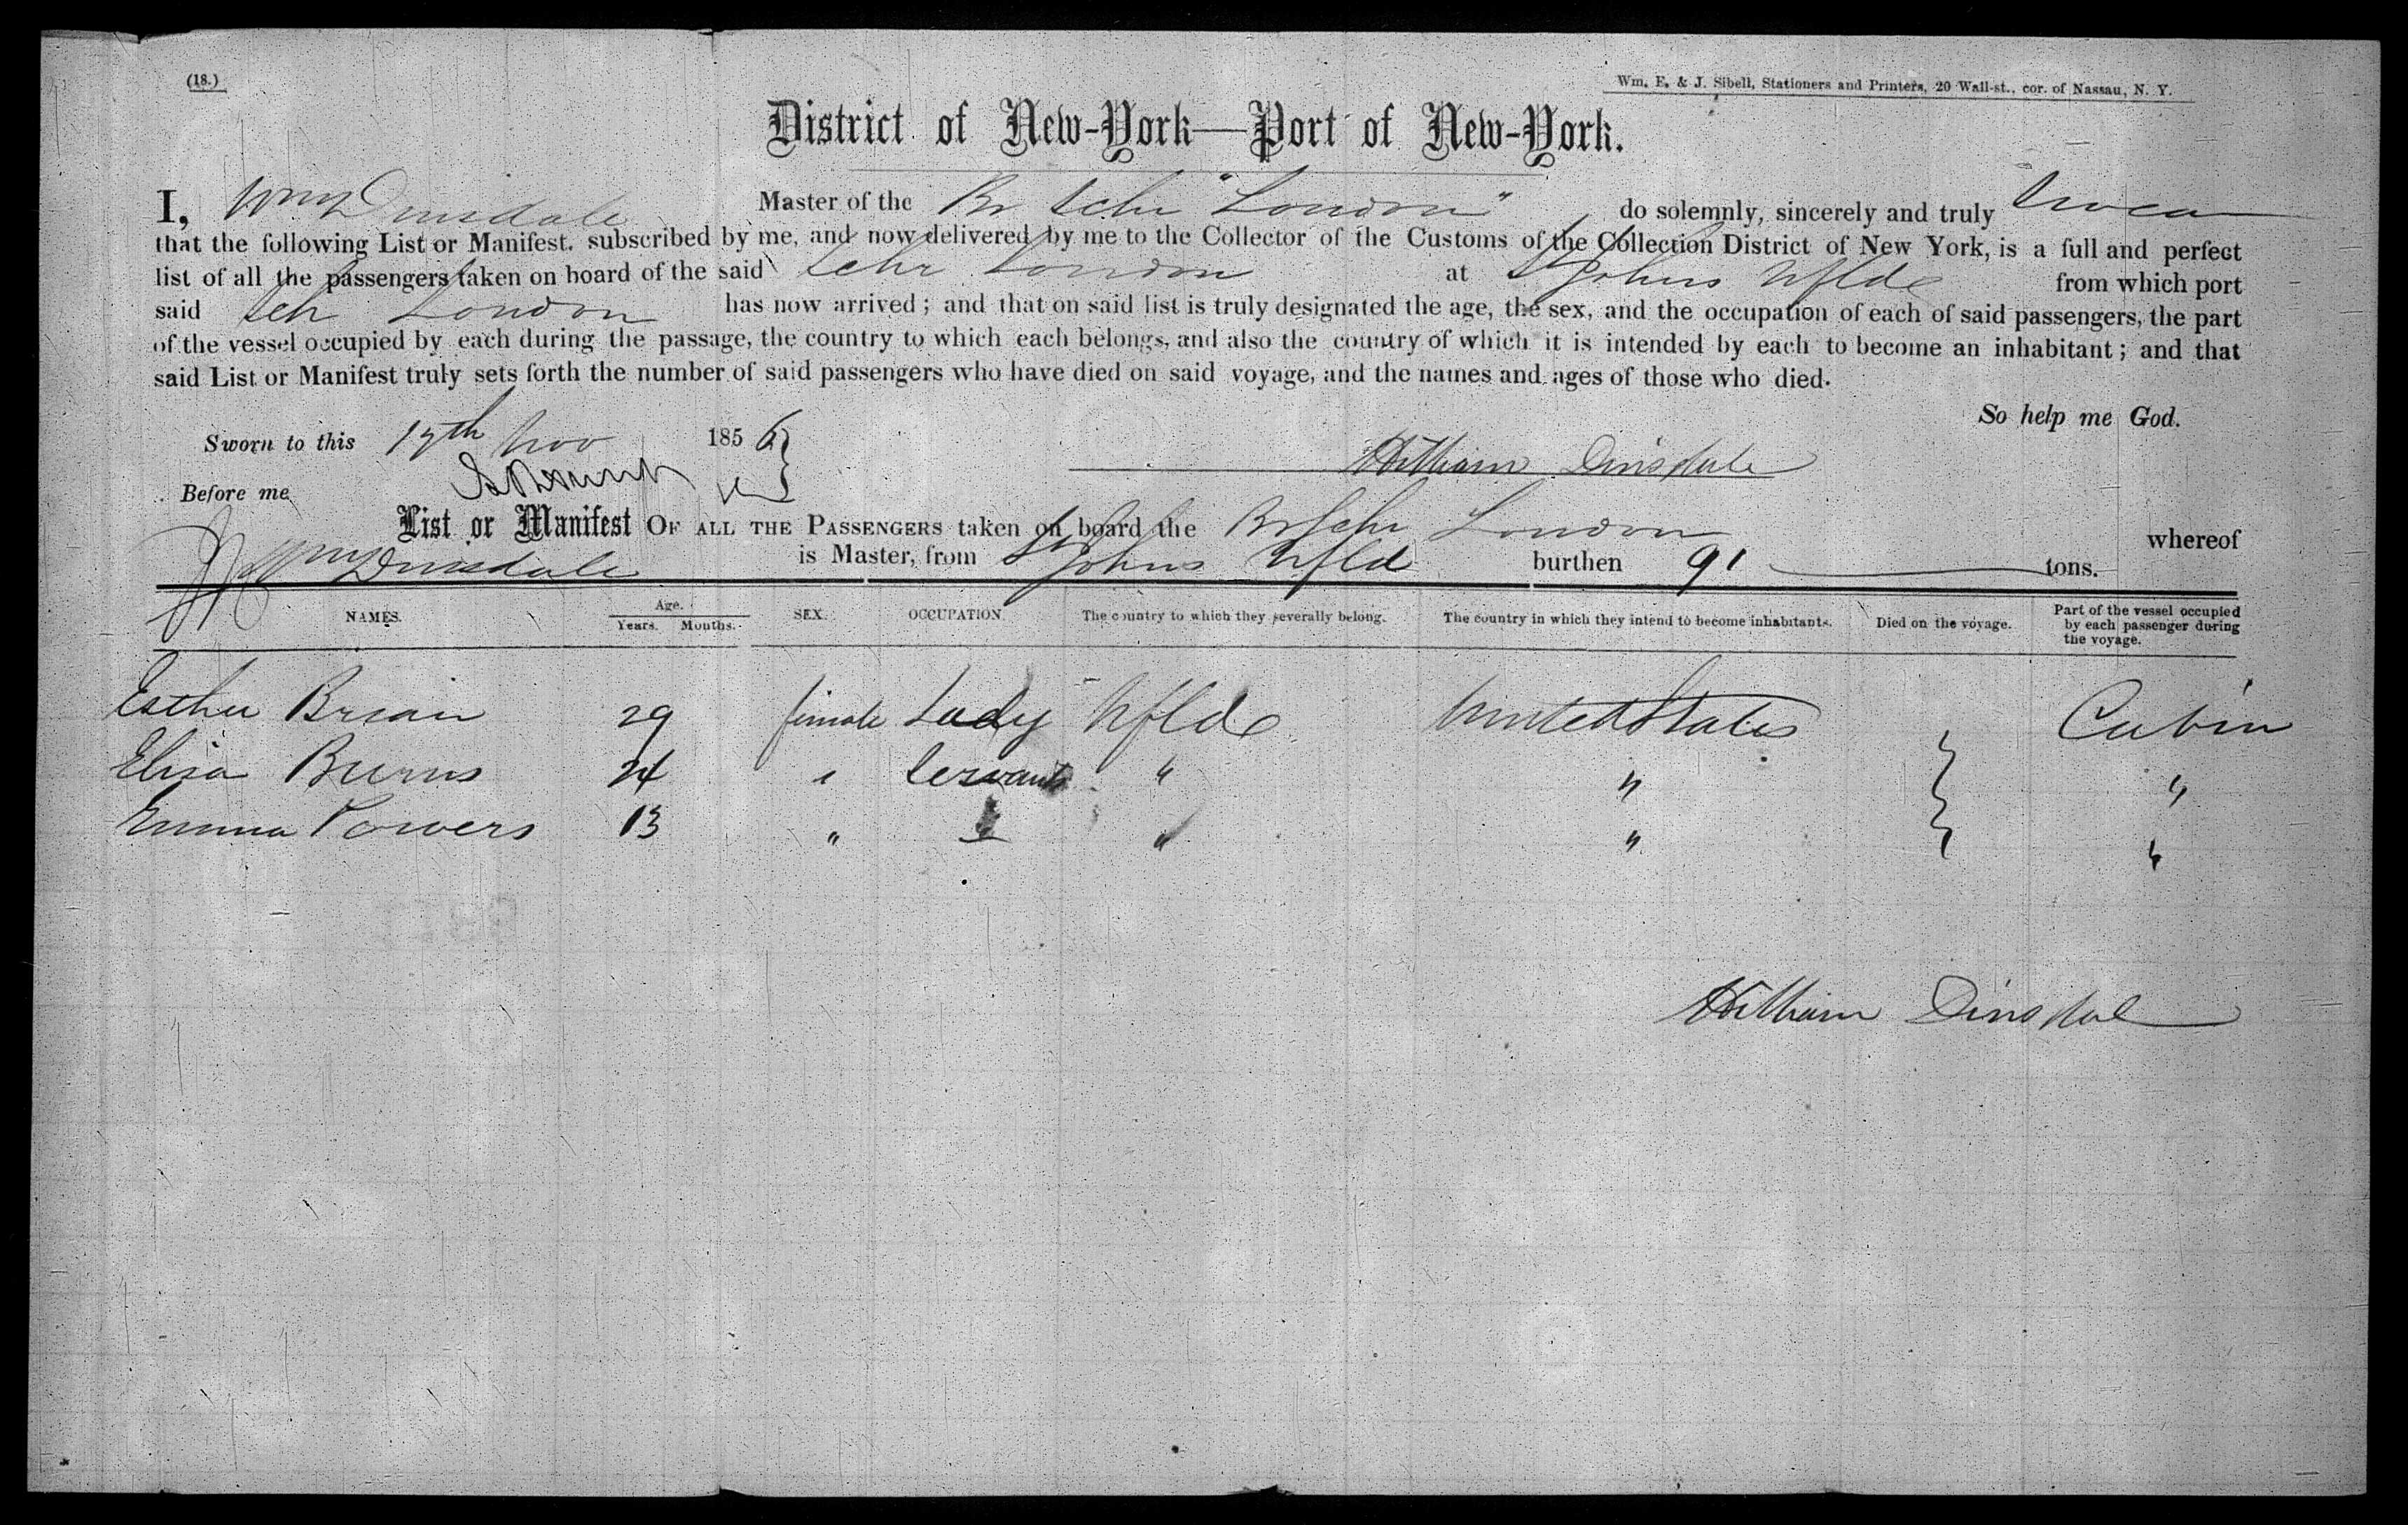 (18.)
Wm. E. & J. Sibell, Stationers and Printers, 20 Wall-st., cor. of Nassau, N. Y.
District of New-York—Port of New-York.
I, Wm Dinsdale Master of the Br Schr "London" do solemnly, sincerely and truly swear
that the following List or Manifest, subscribed by me, and now delivered by me to the Collector of the Customs of the Collection District of New York, is a full and perfect
list of all the passengers taken on board of the said Schr London at St Johns Nfld from which port
said Sch London has now arrived; and that on said list is truly designated the age, the sex, and the occupation of each of said passengers, the part
of the vessel occupied by each during the passage, the country to which each belongs, and also the country of which it is intended by each to become an inhabitant; and that
said List or Manifest truly sets forth the number of said passengers who have died on said voyage, and the names and ages of those who died.
So help me God.
Sworn to this 17th Nov 1856
William Dinsdale
Before me
List or Manifest OF ALL THE PASSENGERS taken on board the Br Schr London whereof
Wm Dinsdale is Master, from St Johns Nfld burthen 91 tons.
NAMES. Age. Years. Months. SEX. OCCUPATION. The country to which they severally belong. The country in which they intend to become inhabitants. Died on the voyage. Part of the vessel occupied by each passenger during the voyage.
Esther Brian 29 female Lady Nfld United States Cabin
Eliza Burns 24 " Servants " " "
Emma Powers 13 " " " "
William Dinsdale